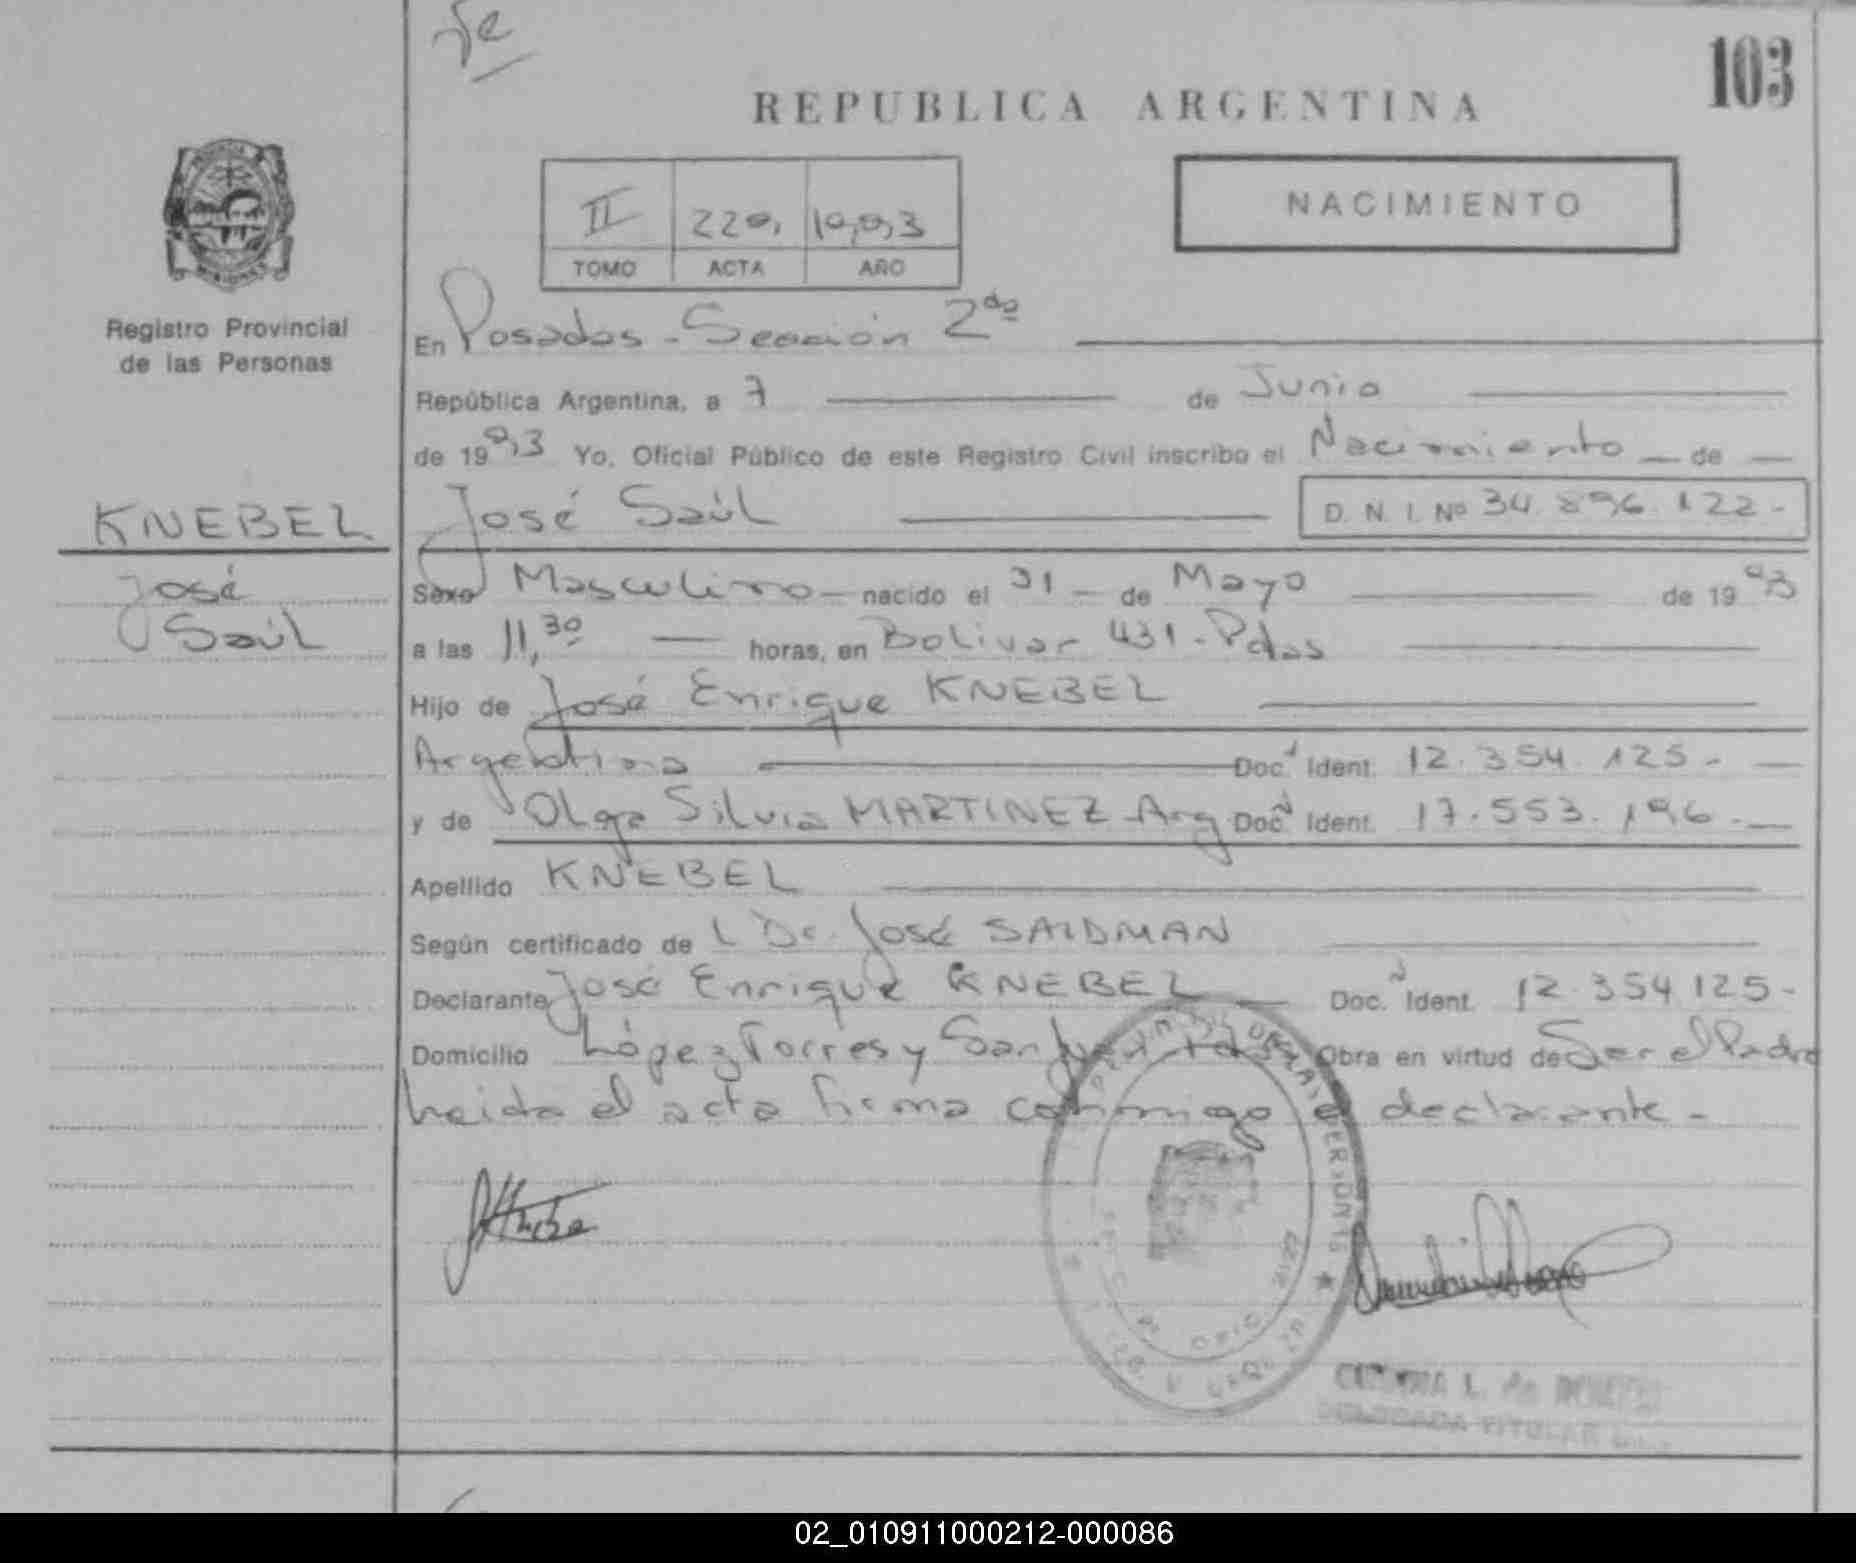 103
REPUBLICA ARGENTINA
NACIMIENTO
II 220, 19,9,3
TOMO ACTA AÑO
Registro Provincial
de las Personas
En Posadas - Sección 2da
República Argentina, a 7 de Junio
de 1993 Yo, Oficial Público de este Registro Civil inscribo el Nacimiento de
KNEBEL
José Saúl D. N. I. Nº 34.896.122-
José
Saúl
Sexo Masculino nacido el 31 de Mayo de 1993
a las 11,30 horas, en Bolivar 431 - Pdas
Hijo de José Enrique KNEBEL
Argentina Doc. Ident. 12.354.125-
y de Olga Silvia MARTINEZ - Arg Doc. Ident. 17.553.196-
Apellido KNEBEL
Según certificado de L Dr. José SAIDMAN
Declarante José Enrique KNEBEL Doc. Ident. 12.354.125-
Domicilio López Torres y San Obra en virtud de Ser el Padre
Leida el acta firma conmigo el declarante -
02_010911000212-000086